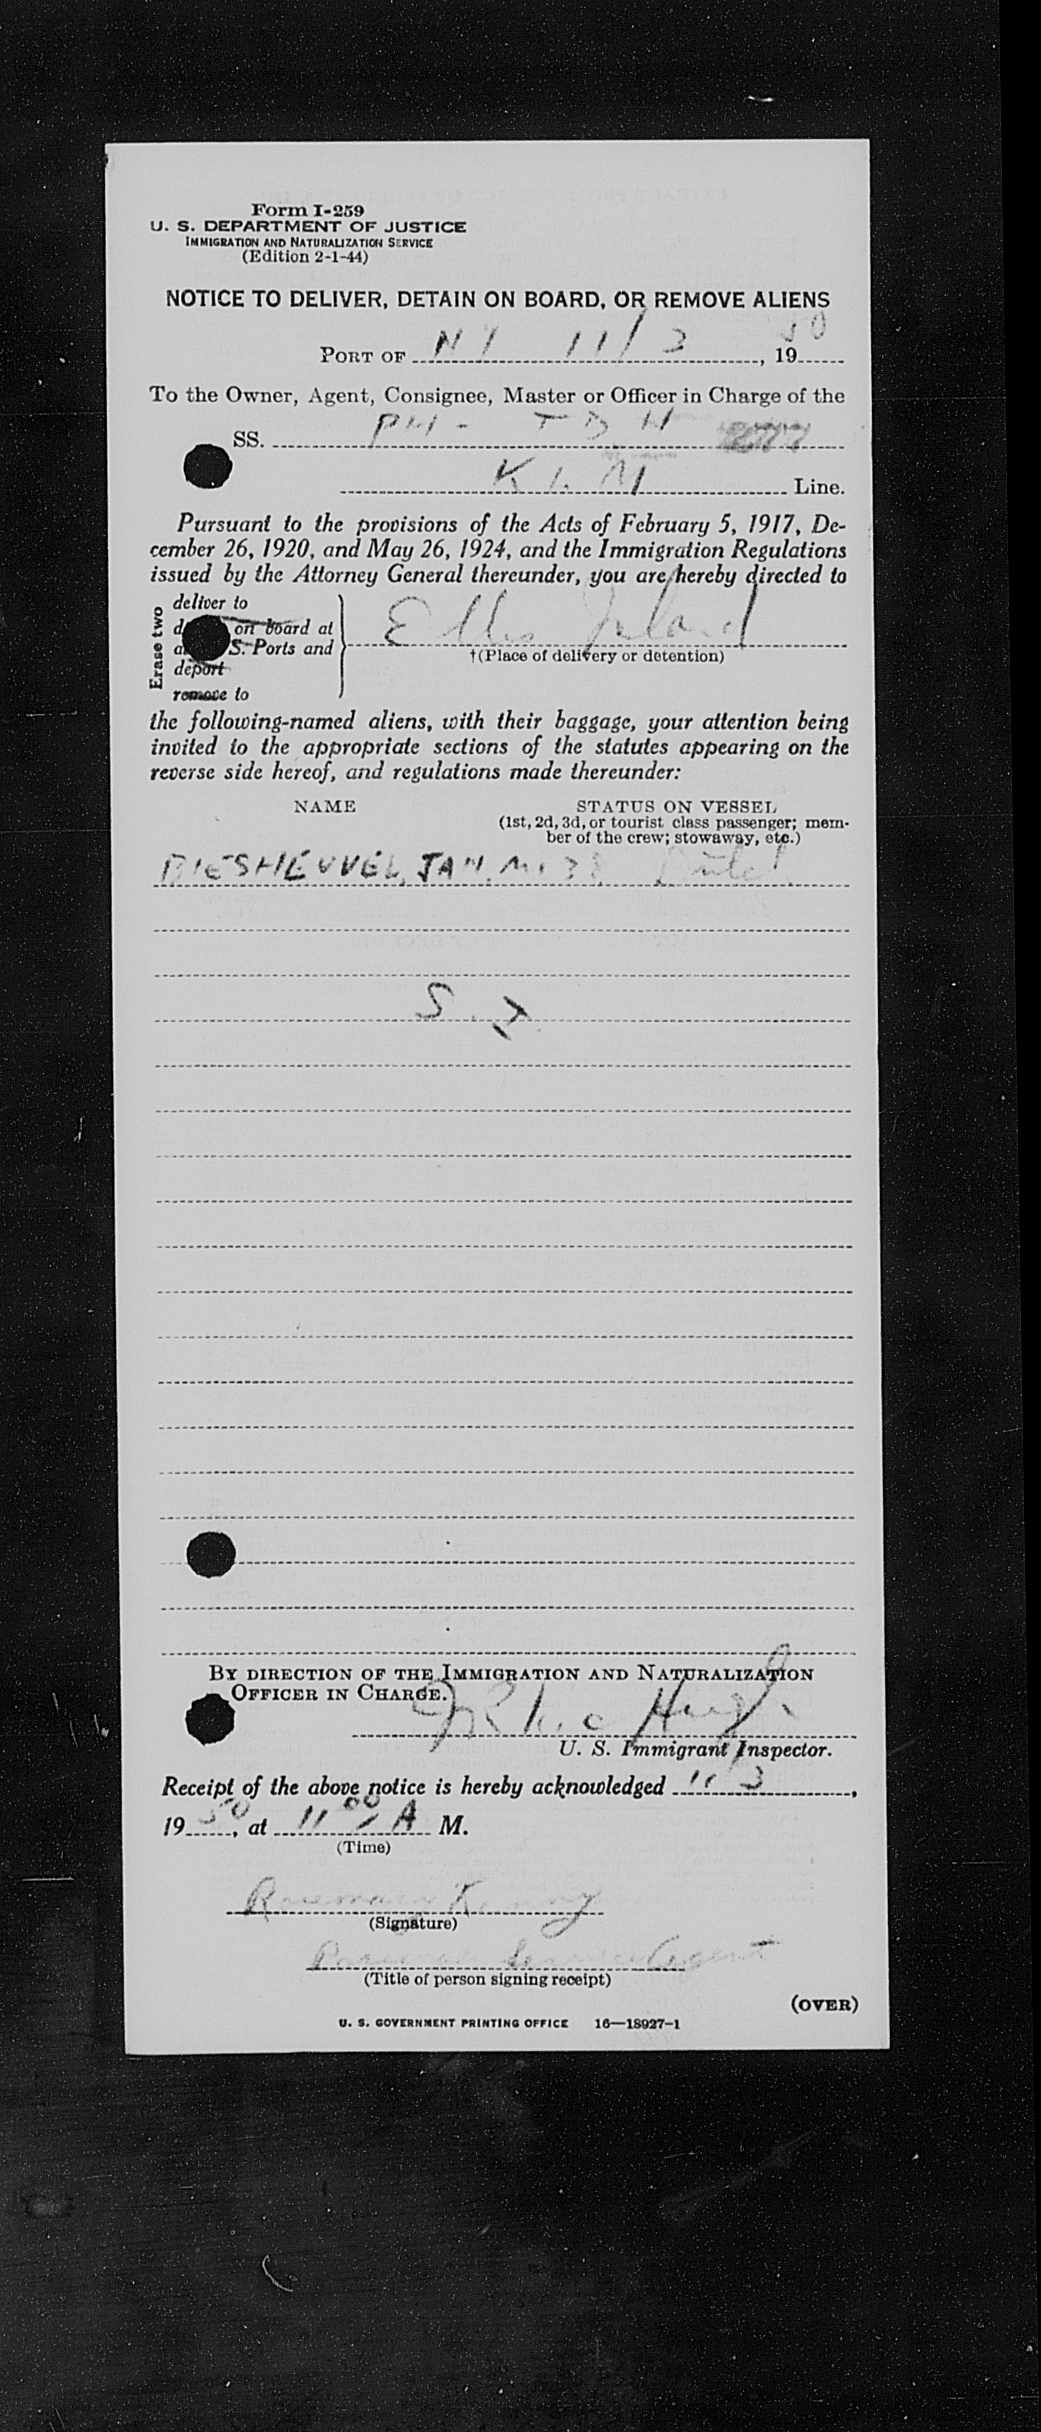 Form I-259
U. S. DEPARTMENT OF JUSTICE
IMMIGRATION AND NATURALIZATION SERVICE
(Edition 2-1-44)
NOTICE TO DELIVER, DETAIN ON BOARD, OR REMOVE ALIENS
PORT OF NY 11/3, 1950
To the Owner, Agent, Consignee, Master or Officer in Charge of the
SS. PH - TDH
KLM Line.
Pursuant to the provisions of the Acts of February 5, 1917, De-
cember 26, 1920, and May 26, 1924, and the Immigration Regulations
issued by the Attorney General thereunder, you are hereby directed to
Erase two
deliver to
on board at
S. Ports and
deport
remove to
Ellis Island
†(Place of delivery or detention)
the following-named aliens, with their baggage, your attention being
invited to the appropriate sections of the statutes appearing on the
reverse side hereof, and regulations made thereunder:
NAME STATUS ON VESSEL
(1st, 2d, 3d, or tourist class passenger; mem-
ber of the crew; stowaway, etc.)
BIESHEUVEL, JAN. M. 38 Dutch
S. I
BY DIRECTION OF THE IMMIGRATION AND NATURALIZATION
OFFICER IN CHARGE.
U. S. Immigrant Inspector.
Receipt of the above notice is hereby acknowledged 11 3,
1950, at 11 00 A M.
(Time)
Rosemary Kenny
(Signature)
Passenger Service Agent
(Title of person signing receipt)
(OVER)
U. S. GOVERNMENT PRINTING OFFICE 16—18927-1